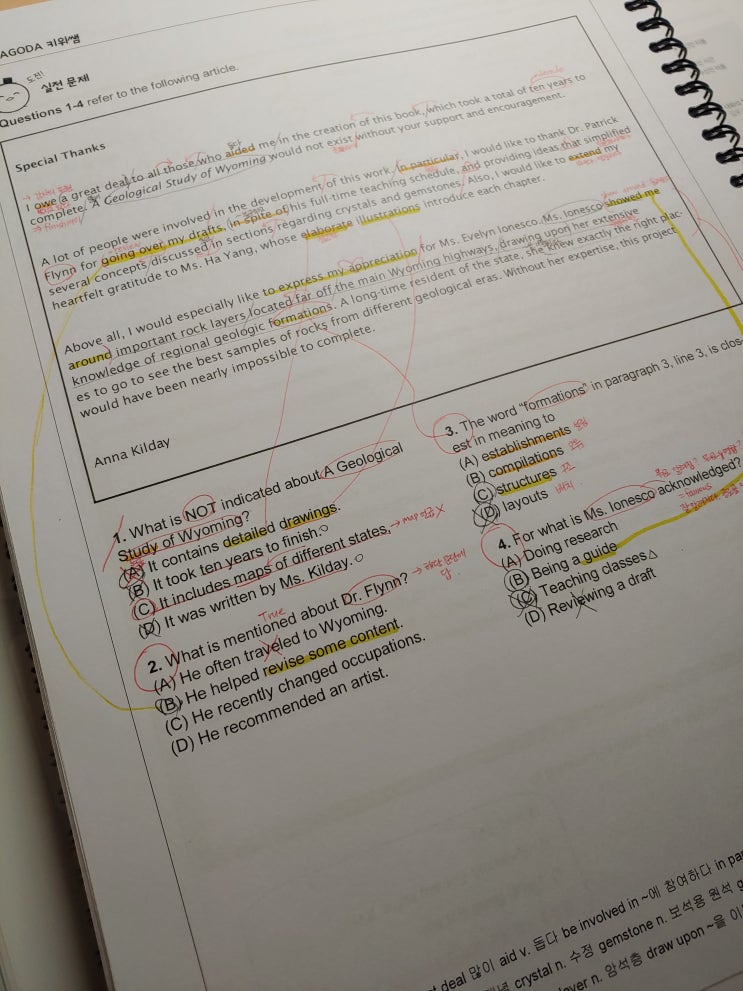 AGODA 키위쌤
도전!
실전 문제
Questions 1-4 refer to the following article.
Special Thanks
I owe a great deal to all those who aided me in the creation of this book, which took a total of ten years to
complete. A Geological Study of Wyoming would not exist without your support and encouragement.
A lot of people were involved in the development of this work. In particular, I would like to thank Dr. Patrick
Flynn for going over my drafts, in spite of his full-time teaching schedule, and providing ideas that simplified
several concepts discussed in sections regarding crystals and gemstones. Also, I would like to extend my
heartfelt gratitude to Ms. Ha Yang, whose elaborate illustrations introduce each chapter.
Above all, I would especially like to express my appreciation for Ms. Evelyn Ionesco. Ms. Ionesco showed me
around important rock layers located far off the main Wyoming highways, drawing upon her extensive
knowledge of regional geologic formations. A long-time resident of the state, she knew exactly the right plac-
es to go to see the best samples of rocks from different geological eras. Without her expertise, this project
would have been nearly impossible to complete.
Anna Kilday
1. What is NOT indicated about A Geological
Study of Wyoming?
(A) It contains detailed drawings.
(B) It took ten years to finish.
(C) It includes maps of different states. → map 언급 X
(D) It was written by Ms. Kilday.
True
2. What is mentioned about Dr. Flynn?
(A) He often traveled to Wyoming.
(B) He helped revise some content.
(C) He recently changed occupations.
(D) He recommended an artist.
3. The word "formations" in paragraph 3, line 3, is clos-
est in meaning to
(A) establishments
(B) compilations
(C) structures 구조
(D) layouts 배치
4. For what is Ms. Ionesco acknowledged?
= famous
(A) Doing research
(B) Being a guide
(C) Teaching classes
(D) Reviewing a draft
t deal 많이 aid v. 돕다 be involved in ~에 참여하다 in pa
crystal n. 수정 gemstone n. 보석용 원석 g
layer n. 암석층 draw upon ~을 이